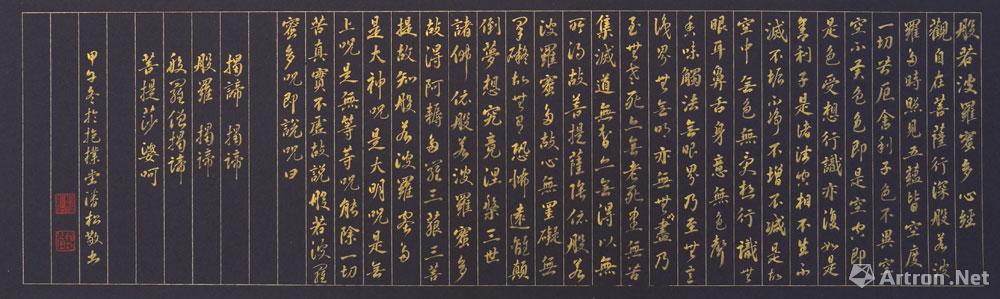 般若波羅蜜多心經
觀自在菩薩行深般若波
羅多時照見五蘊皆空度
一切苦厄舍利子色不異空
空不異色色即是空空即
是色受想行識亦復如是
舍利子是諸法空相不生不
滅不垢不淨不增不減是故
空中無色無受想行識無
眼耳鼻舌身意無色聲
香味觸法無眼界乃至無意
識界無無明亦無無明盡乃
至無老死亦無老死盡無苦
集滅道無智亦無得以無
所得故菩提薩陲依般若
波羅蜜多故心無罣礙無
罣礙故無有恐怖遠離顛
倒夢想究竟涅槃三世
諸佛依般若波羅蜜多
故得阿耨多羅三藐三菩
提故知般若波羅蜜多
是大神呪是大明呪是無
上呪是無等等呪能除一切
苦真實不虛故說般若波羅
蜜多呪即說呪曰
揭諦 揭諦
般羅 揭諦
般羅僧揭諦
菩提莎婆呵
甲午冬於抱樸堂潘松敬書
Artron.Net